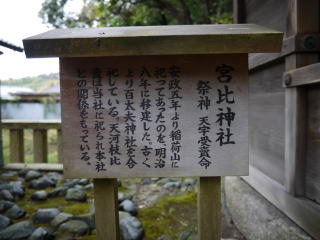 宮比神社
祭神 天宇受賣命
安政五年より稲荷山に
祀ってあったのを、明治
八年に移建した。古く
より百太夫神社を合
祀している。天河枝比
賣は当社に祀られ本社
との関係をもっている。